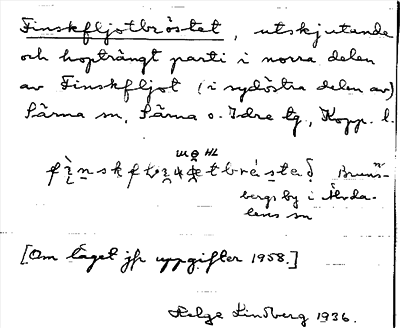 Finskfljotbröstet, utskjutande
och hopträngt parti i norra delen
av Finskfljot (i sydöstra delen av)
Särna sn, Särna o. Idre tg., Kopp. l.
Bruns-
bergs by i Älvda-
lens sn
[Om läget jfr uppgifter 1958.]
Helge Lindberg 1936.